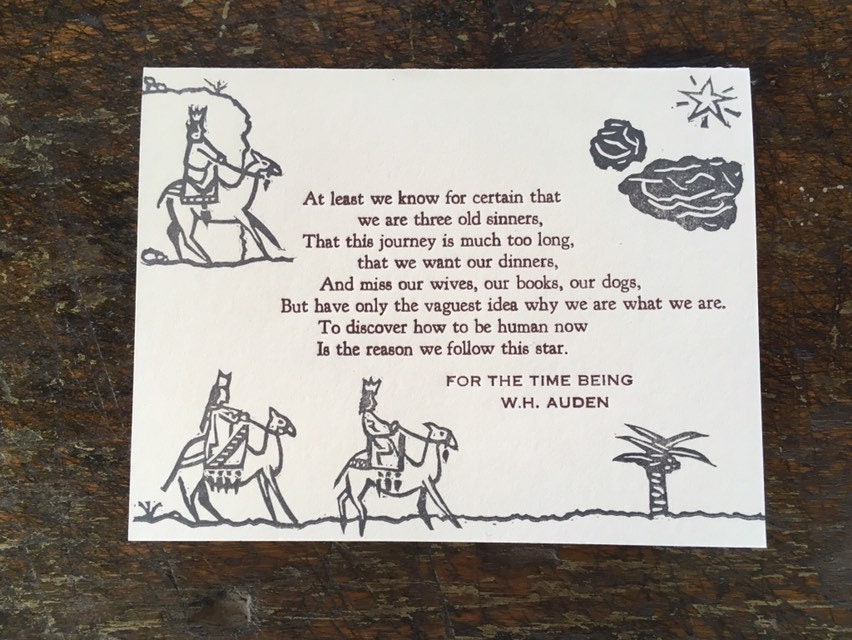 At least we know for certain that
we are three old sinners,
That this journey is much too long,
that we want our dinners,
And miss our wives, our books, our dogs,
But have only the vaguest idea why we are what we are.
To discover how to be human now
Is the reason we follow this star.
FOR THE TIME BEING
W.H. AUDEN